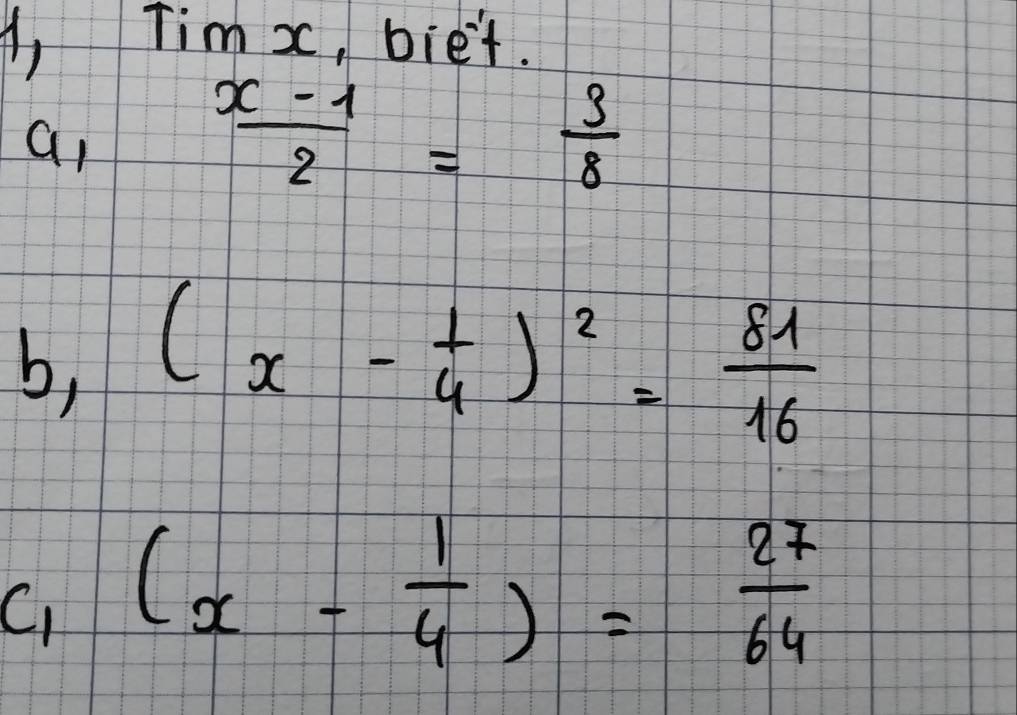 1, Tìm x, biết.
a, \frac{x - 1}{2} = \frac{3}{8}
b, ( x - \frac{1}{4} )^2 = \frac{81}{16}
c, ( x - \frac{1}{4} ) = \frac{27}{64}